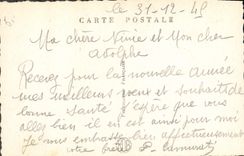 le 31-12-45
CARTE POSTALE
Ma chère Ninie et Mon cher
Adolphe
Recevez pour la nouvelle année
mes meilleurs vœux et souhaits de
bonne santé j'espère que vous
allez bien il en est ainsi pour moi
Je vous embrasse bien affectueusement
votre